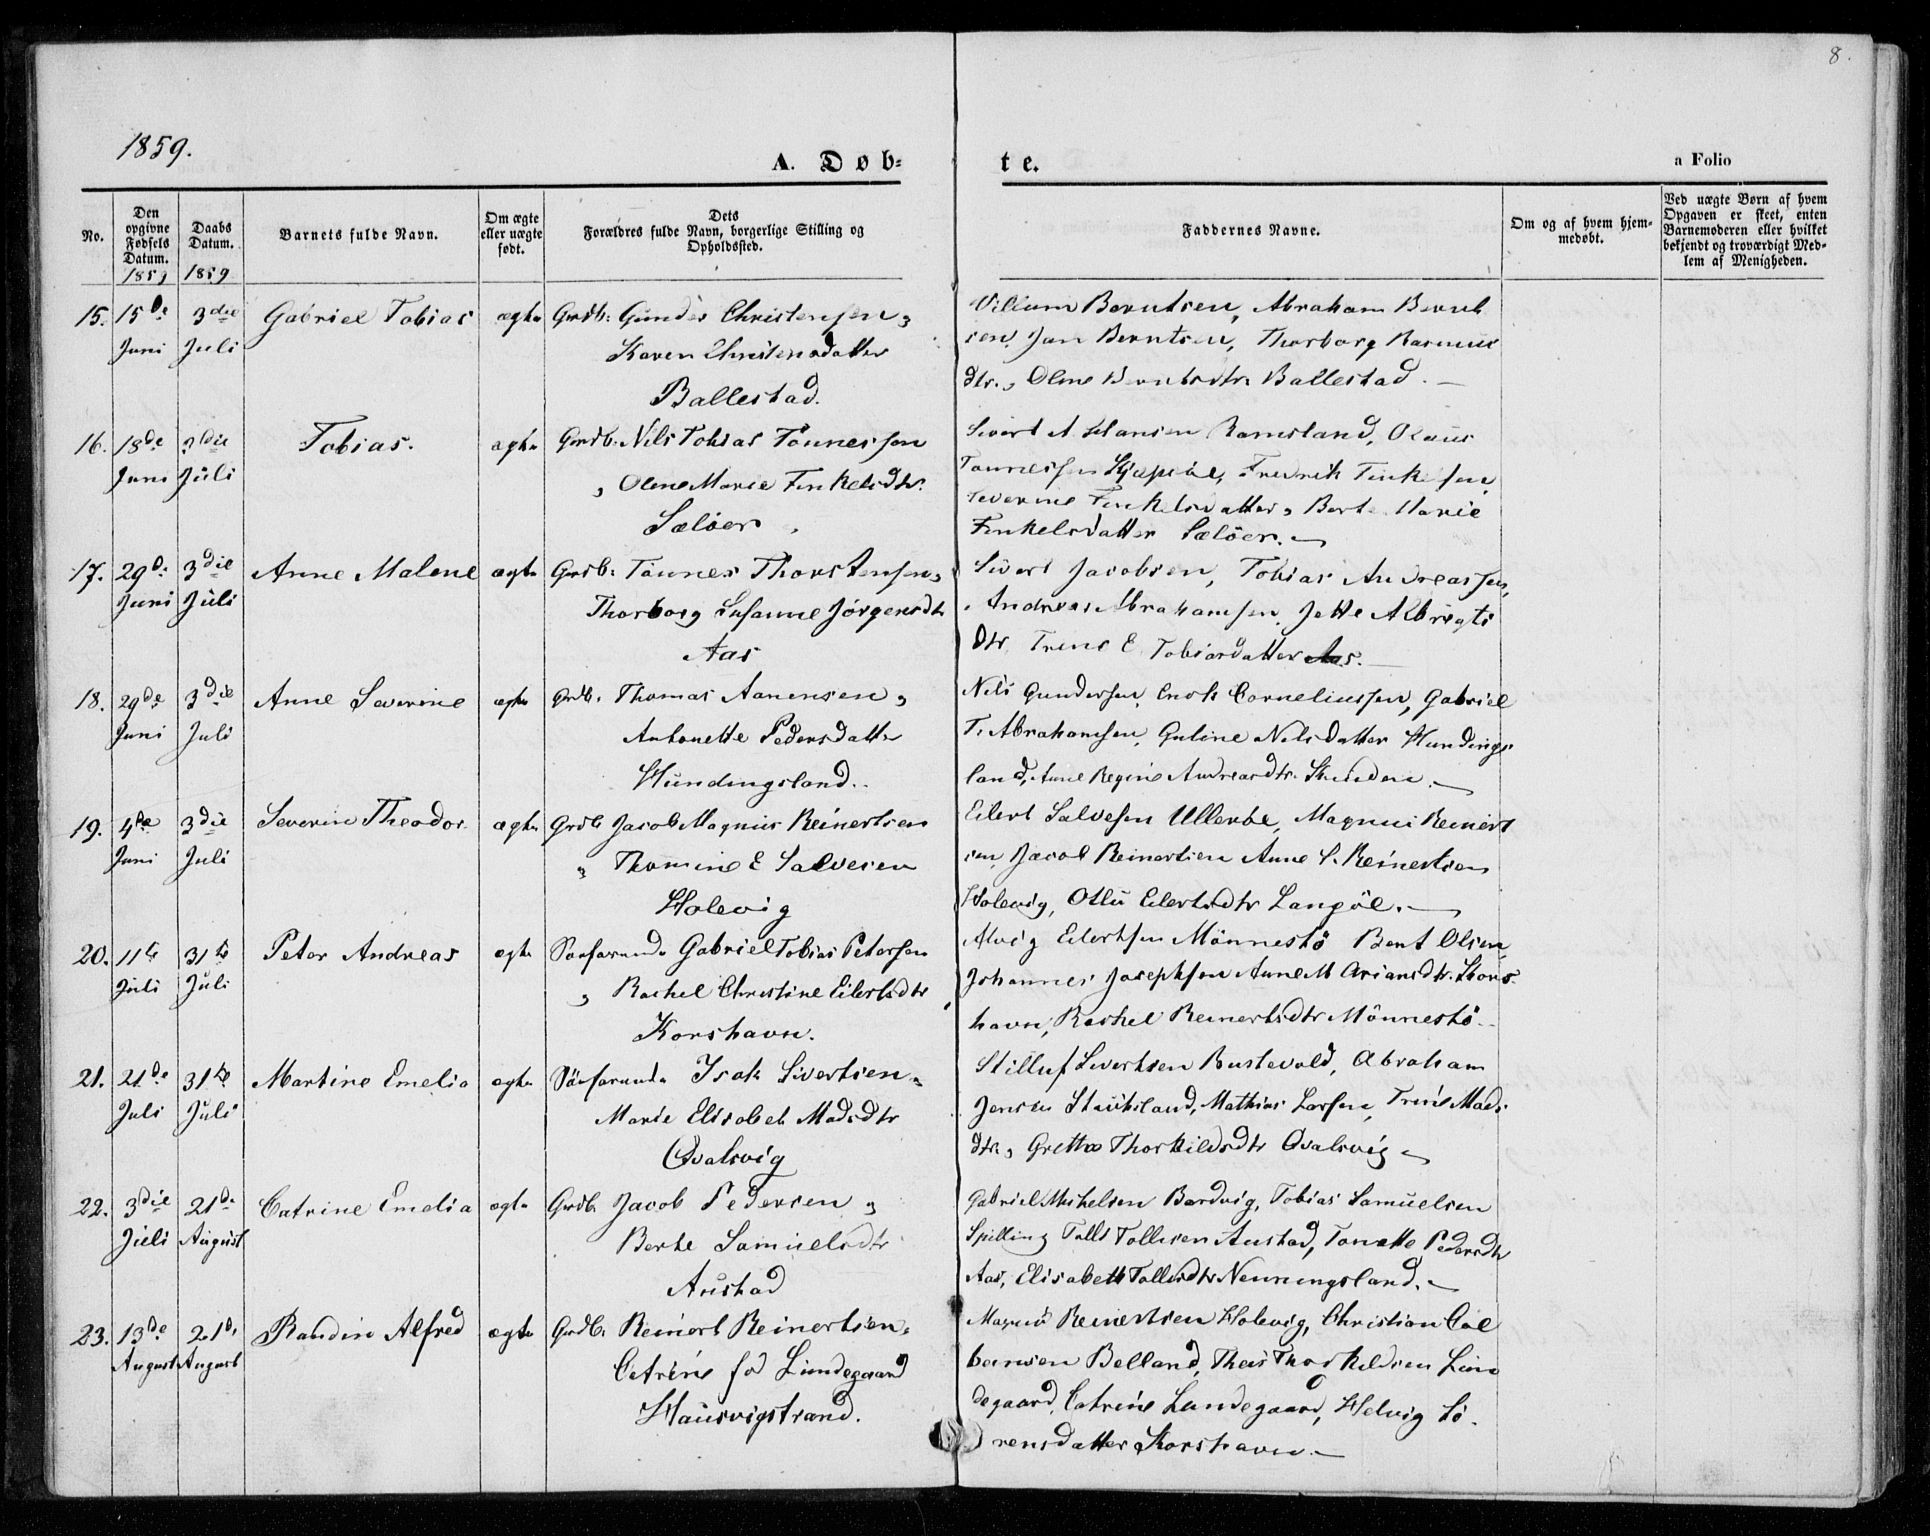 8.
1859.
A. Døb-
te.
a Folio
No.
Den opgivne Fødsels Datum. 1859
Daabs Datum. 1859
Barnets fulde Navn.
Om ægte eller uægte født.
Dets Forældres fulde Navn, borgerlige Stilling og Opholdssted.
Faddernes Navne.
Om og af hvem hjemmedøbt.
Ved uægte Børn af hvem Opgaven er skeet, enten Barnemoderen eller hvilket bekjendt og troværdigt Medlem af Menigheden.
15. 15de 3die Gabriel Tobias ægte Grdb. Gunder Christensen,
Juni Juli Karen Christensdatter
Ballestad.
Villum Berntsen, Abraham Bernt
sen, Jan Berntsen, Thorborg Rasmus
dtr., Olene Berntsdtr. Ballestad.
16. 18de 3die Tobias. ægte Grdb. Nils Tobias Tönnessen
Juni Juli , Olene Marie Finkelsdtr.
Selöer
Sivert A. Hansen Ramsland, Olaus
Tönnessen, Fredrik Finkelsen,
Severine Finkelsdatter, Berte Marie
Finkelsdatter Selöer.
17. 29de 3die Anne Malene ægte Grdb. Tönnes Thorstensen,
Juni Juli Thorborg Susanne Jörgensdtr
Aas
Sivert Jacobsen, Tobias Andreassen,
Andreas Abrahamsen, Jette Albregts
dtr, Trine E. Tobiasdatter Aas.
18. 29de 3die Anne Severine ægte Grdb. Thomas Aanensen,
Juni Juli Antonette Pedersdatter
Hundingsland.
Nils Gundersen, Enok Corneliussen, Gabriel
T. Abrahamsen, Guline Nilsdatter Hundings
land, Anne Regine Andreasdtr.
19. 4de 3die Severin Theodor ægte Grdb. Jacob Magnus Reinertsen
Juni Juli , Thomine E Salvesen
Holevig
Eilert Salvesen Ullerbe, Magnus Reinert
sen, Jacob Reinertsen Anne S. Reinertsen
Holevig, Eilertsdtr Langöe.
20. 11te 31te Peter Andreas ægte Söefarende Gabriel Tobias Petersen
Juli Juli , Rachel Christine Eilertsdtr
Korshavn.
Alvig Eilertsen Mönnestö Bent Olsen,
Johannes Josephsen Anne M Ariansdtr. Kors-
havn, Rachel Reinertsdtr Mönnestö.
21. 21de 31te Martine Emelia ægte Söefarende Isak Sivertsen,
Juli Juli Marie Elisabet Madsdtr
Qvalsvig
Sivertsen, Abraham
Jensen, Mathias Larsen, Trine Mads
dtr., Grethe Thorkildsdtr Qvalsvig
22. 3die 21de Catrine Emelia ægte Grdb. Jacob Pedersen,
Juli August Berte Samuelsdtr
Austad
Gabriel Mikelsen Bardvig, Tobias Samuelsen
Spilling Talle Tallesen Austad, Tonette Pedersdtr
Aas, Elisabeth Tallesdtr Nenningsland.
23. 13de 21de Randin Alfred ægte Grdb. Reinert Reinertsen,
August August Catrine fød Lundegaard
Hausvigstrand.
Magnus Reinertsen Holevig, Christian Col
bensen Belland, Theis Thorkildsen Lun
degaard, Catrine Lundegaard, Helvig Sö-
rensdatter Korshavn.